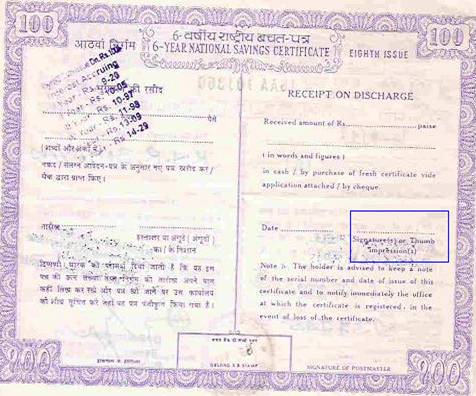 100
6-वर्षीय राष्ट्रीय बचत-पत्र
100
आठवां निर्गम
6-YEAR NATIONAL SAVINGS CERTIFICATE
EIGHTH ISSUE
की रसीद
9-20
10-97
11-98
Rs. 13-09
Rs. 14-29
पैसे
(शब्दों और अंकों में)
नकद / संलग्न आवेदन-पत्र के अनुसार नए पत्र खरीद कर /
चैक द्वारा प्राप्त किए।
तारीख
हस्ताक्षर या अंगूठे (अंगूठों)
का / के निशान
टिप्पणी: धारक को परामर्श दिया जाता है कि वह इस
पत्र की क्रम संख्या तथा
कहीं लिख कर रखे और पत्र खो जाने पर उस कार्यालय
को शीघ्र सूचित करे जहां वह पत्र पंजीकृत किया गया है।
RECEIPT ON DISCHARGE
Received amount of Rs. paise
(in words and figures)
in cash / by purchase of fresh certificate vide
application attached / by cheque.
Date
Signature(s) or Thumb
impression(s)
Note :- The holder is advised to keep a note
of the serial number and date of issue of this
certificate and to notify immediately the office
at which the certificate is registered, in
the event of loss of the certificate.
100
SIGNATURE OF POSTMASTER
100